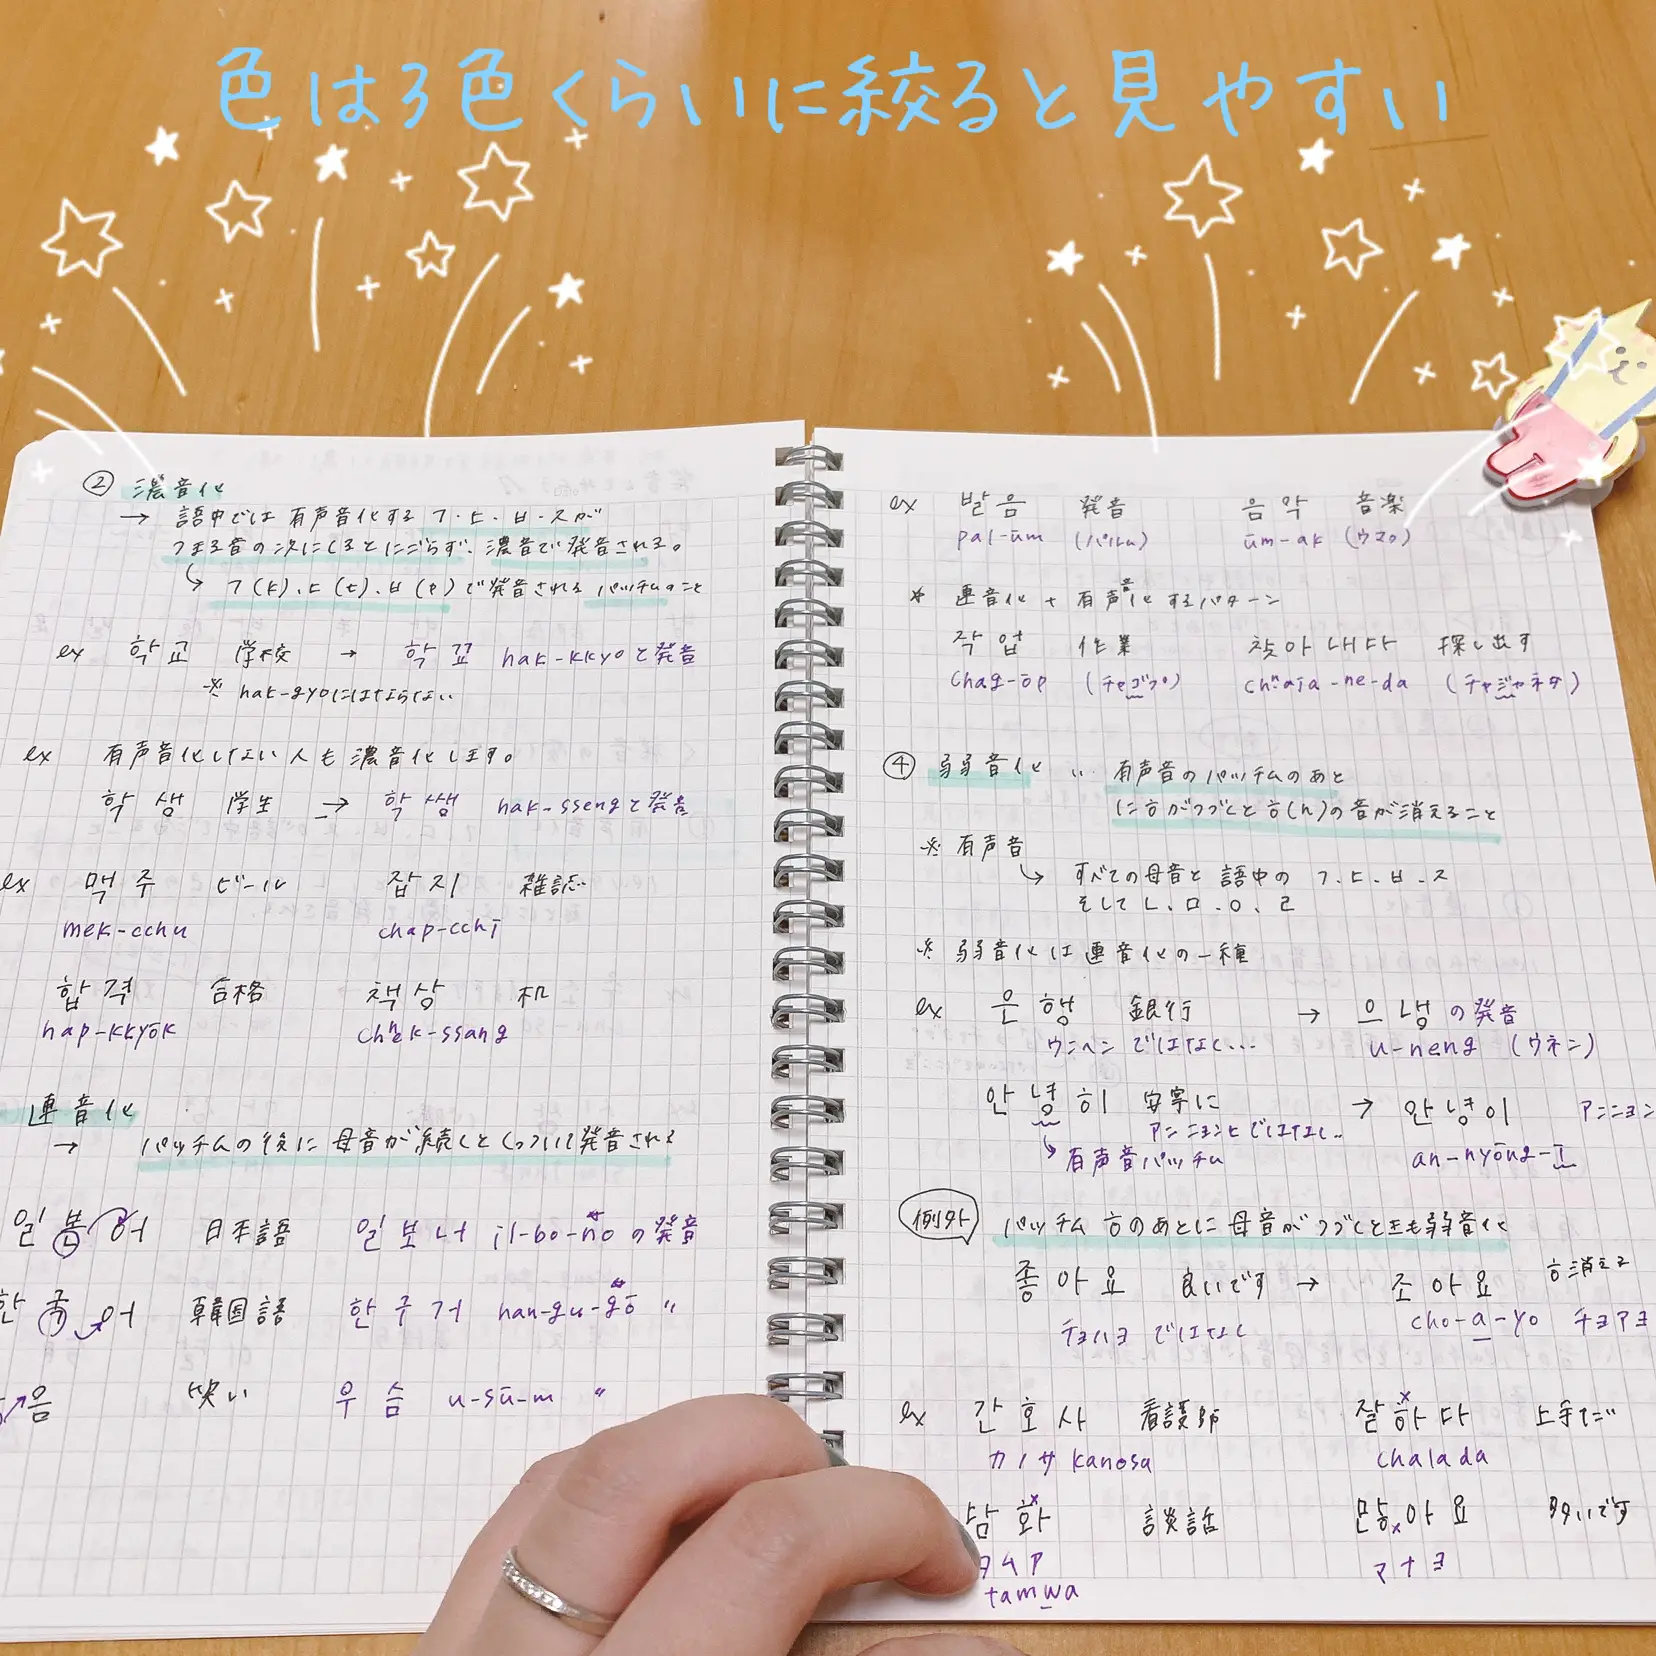 色は3色くらいに絞ると見やすい
② 濃音化
→ 語中では有声音化するㄱ・ㄷ・ㅂ・ㅈが
つまる音の次にくるとにごらず、濃音で発音される。
↳ ㄱ(k)、ㄷ(t)、ㅂ(p)で発音されるパッチムのこと
ex 학교 学校 → 학꾜 hak-kkyoと発音
※ hak-gyoにはならない
ex 有声音化しない人も濃音化します。
학생 学生 → 학쌩 hak-ssengと発音
ex 맥주 ビール 잡지 雑誌
mek-cchu chap-cchi
합격 合格 책상 机
hap-kkyŏk chʰek-ssang
連音化
→ パッチムの後に母音が続くとくっついて発音される
일본어 日本語 일보너 il-bo-nŏの発音
한국어 韓国語 한구거 han-gu-gŏ 〃
음 笑い 우슴 u-sŭ-m 〃
ex 발음 発音 음악 音楽
pal-ŭm (パルム) ŭm-ak (ウマク)
* 連音化+有声音化するパターン
작업 作業 찾아내다 探し出す
chag-ŏp (チャゴプ) chʰaja-ne-da (チャジャネダ)
④ 弱音化 ‥ 有声音のパッチムのあと
にㅎがつづくとㅎ(h)の音が消えること
※ 有声音
↳ すべての母音と語中のㄱ、ㄷ、ㅂ、ㅈ
そしてㄴ、ㅁ、ㅇ、ㄹ
※ 弱音化は連音化の一種
ex 은행 銀行 → 으냉の発音
ウンヘンではなく… u-neng (ウネン)
안녕히 安寧に → 안녕이 アンニョン
アンニョンヒではなく..
↳ 有声音パッチム an-nyŏng-i
例外 パッチムㅎのあとに母音がつづくときも弱音化
좋아요 良いです → 조아요 ㅎ消える
チョハヨではなく cho-a-yo チョアヨ
ex 간호사 看護師 잘하다 上手だ
カノサ kanosa chalada
담화 談話 많아요 多いです
タムア マナヨ
tamwa